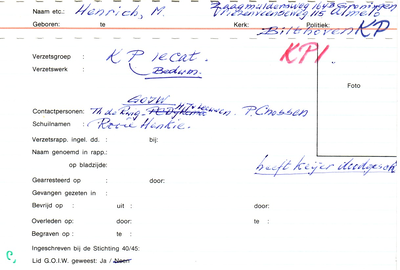 Naam etc.: Henrich, M. Zaagmuldersweg 164B Groningen
Vriezenveenseweg 115 Almelo
Geboren: te Kerk: Politiek: KP
Bilthoven
KP1
Verzetsgroep : K P
Verzetswerk : Bedum.
Foto
GOIW
Contactpersonen: P. Cnossen
Schuilnamen : Rooie Henkie.
Verzetsrapp. ingel. dd. : bij:
Naam genoemd in rapp.:
op bladzijde: heeft Keijer
Gearresteerd op : door:
Gevangen gezeten in :
Bevrijd op : uit : door:
Overleden op: door: te :
Begraven op : te :
Ingeschreven bij de Stichting 40/45:
Lid G.O.I.W. geweest: Ja / Neen